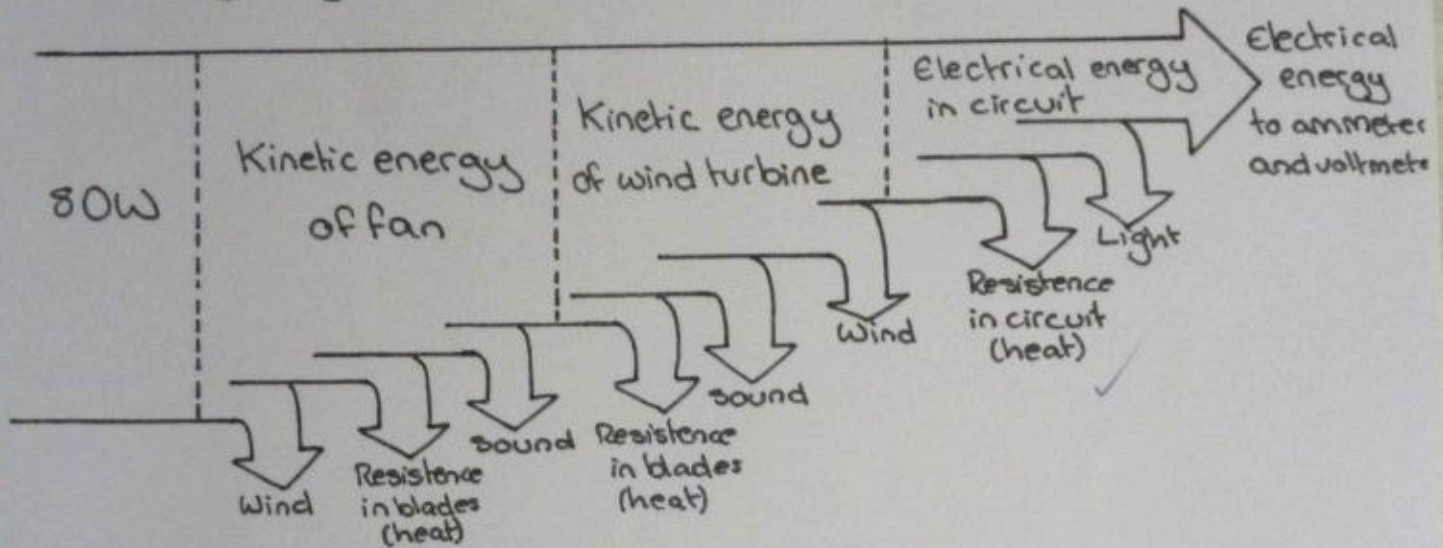 80W
Kinetic energy
of fan
Kinetic energy
of wind turbine
Electrical energy
in circuit
Electrical
energy
to ammeter
and voltmete
Wind
Resistence
in blades
(heat)
sound
Resistence
in blades
(heat)
sound
Wind
Resistence
in circuit
(heat)
Light